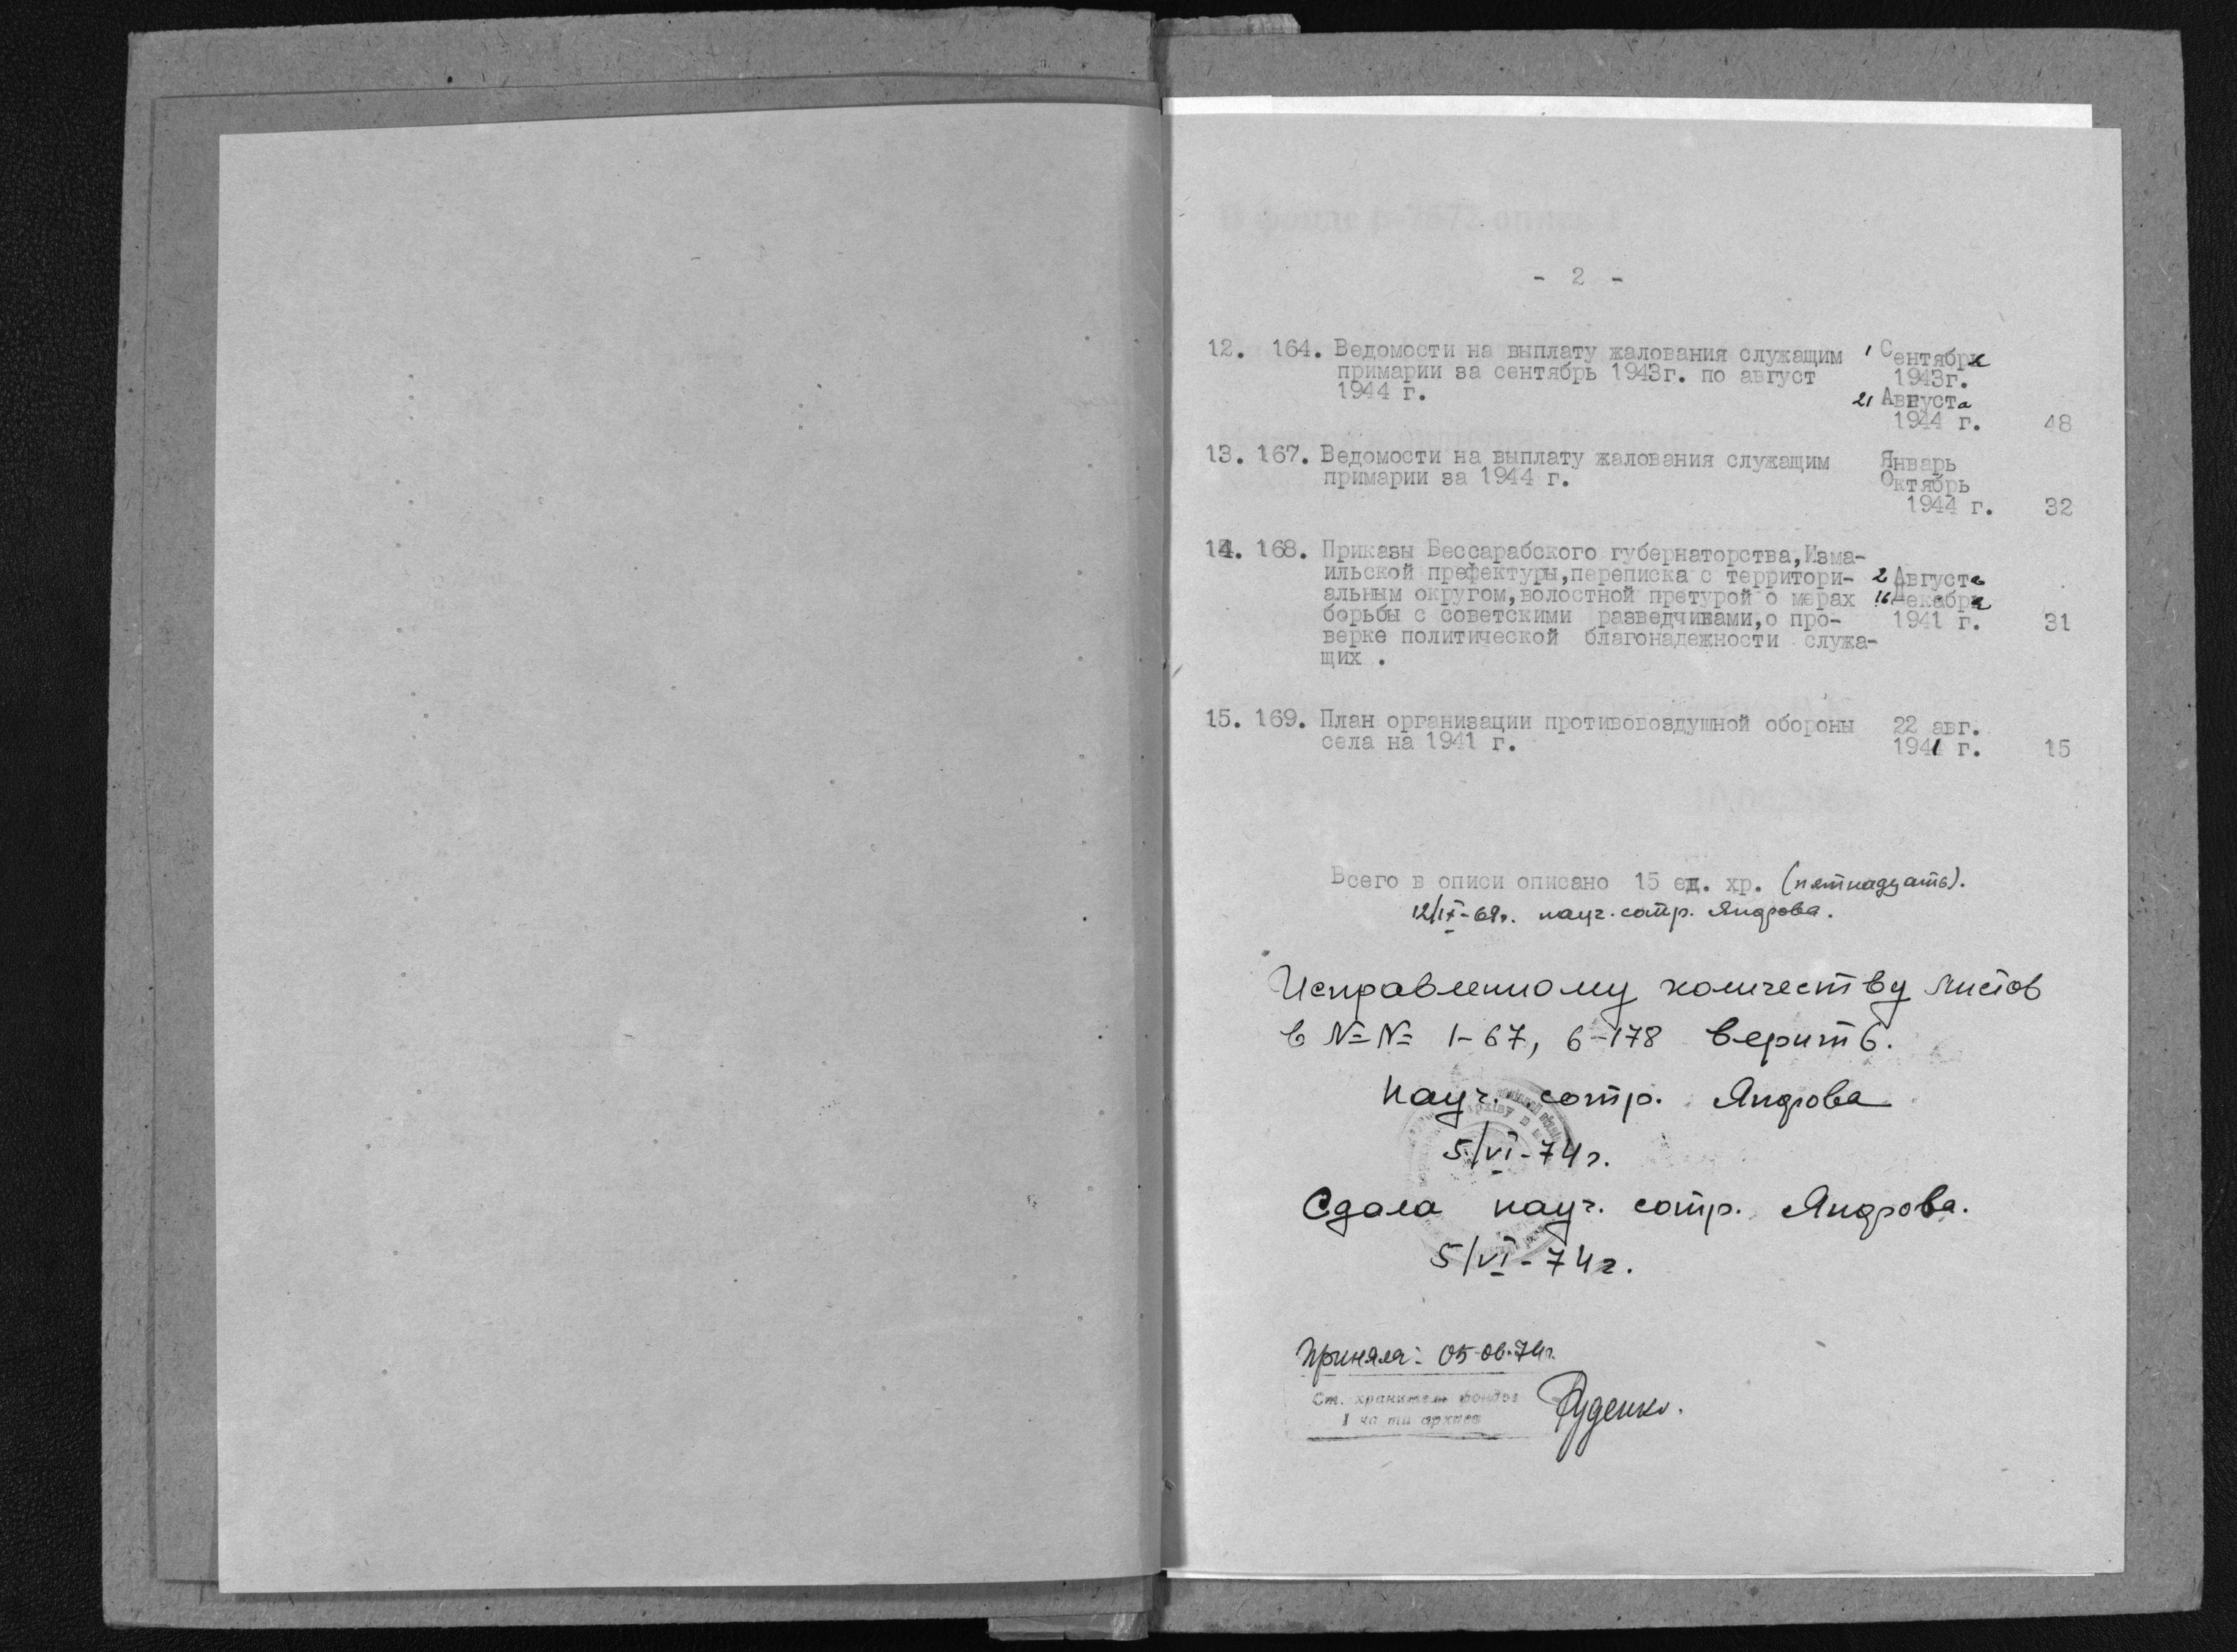 - 2 -
12. 164. Ведомости на выплату жалования служащим 1 Сентября
примарии за сентябрь 1943г. по август 1943г.
1944 г. 21 Августа
1944 г. 48
13. 167. Ведомости на выплату жалования служащим Январь
примарии за 1944 г. Октябрь
1944 г. 32
14. 168. Приказы Бессарабского губернаторства,Изма-
ильской префектуры,переписка с территори- 2 Августа
альным округом,волостной претурой о мерах 16 Декабря
борьбы с советскими разведчиками,о про- 1941 г. 31
верке политической благонадежности служа-
щих .
15. 169. План организации противовоздушной обороны 22 авг.
села на 1941 г. 1941 г. 15
Всего в описи описано 15 ед. хр. (пятнадцать).
12/IX-69г. науч. сотр. Яндрова.
Исправленному количеству листов
в №№ 1-67, 6-178 верить.
Науч. сотр. Яндрова
5/VI-74г.
Сдала науч. сотр. Яндрова.
5/VI-74г.
Приняла: 05-06-74г.
Ст. хранитель фондов
Руденко.